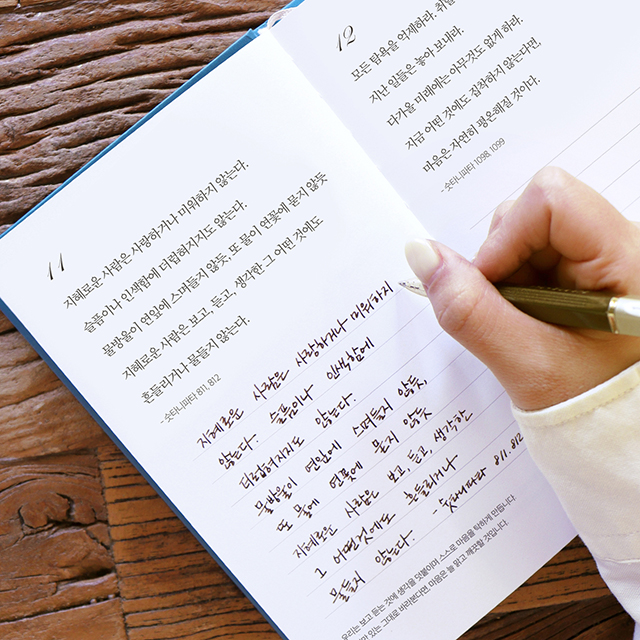 11
지혜로운 사람은 사랑하거나 미워하지 않는다.
슬픔이나 인색함에 더럽혀지지도 않는다.
물방울이 연잎에 스며들지 않듯, 또 물이 연꽃에 묻지 않듯
지혜로운 사람은 보고, 듣고, 생각한 그 어떤 것에도
흔들리거나 물들지 않는다.
- 숫타니파타 811, 812
지혜로운 사람은 사랑하거나 미워하지
않는다. 슬픔이나 인색함에
더럽혀지지도 않는다.
물방울이 연잎에 스며들지 않듯,
또 물에 연꽃에 묻지 않듯
지혜로운 사람은 보고, 듣고, 생각한
그 어떤것에도 흔들리거나
물들지 않는다. - 숫타니파타 811. 812
우리는 보고 듣는 것에 생각을 덧붙이며 스스로 마음을 탁하게 만듭니다.
있는 그대로 바라본다면, 마음은 늘 맑고 깨끗할 것입니다.
12
모든 탐욕을 억제하라.
지난 일들은 놓아 보내라.
다가올 미래에는 아무것도 없게 하라.
지금 어떤 것에도 집착하지 않는다면,
마음은 자연히 평온해질 것이다.
- 숫타니파타 1098, 1099